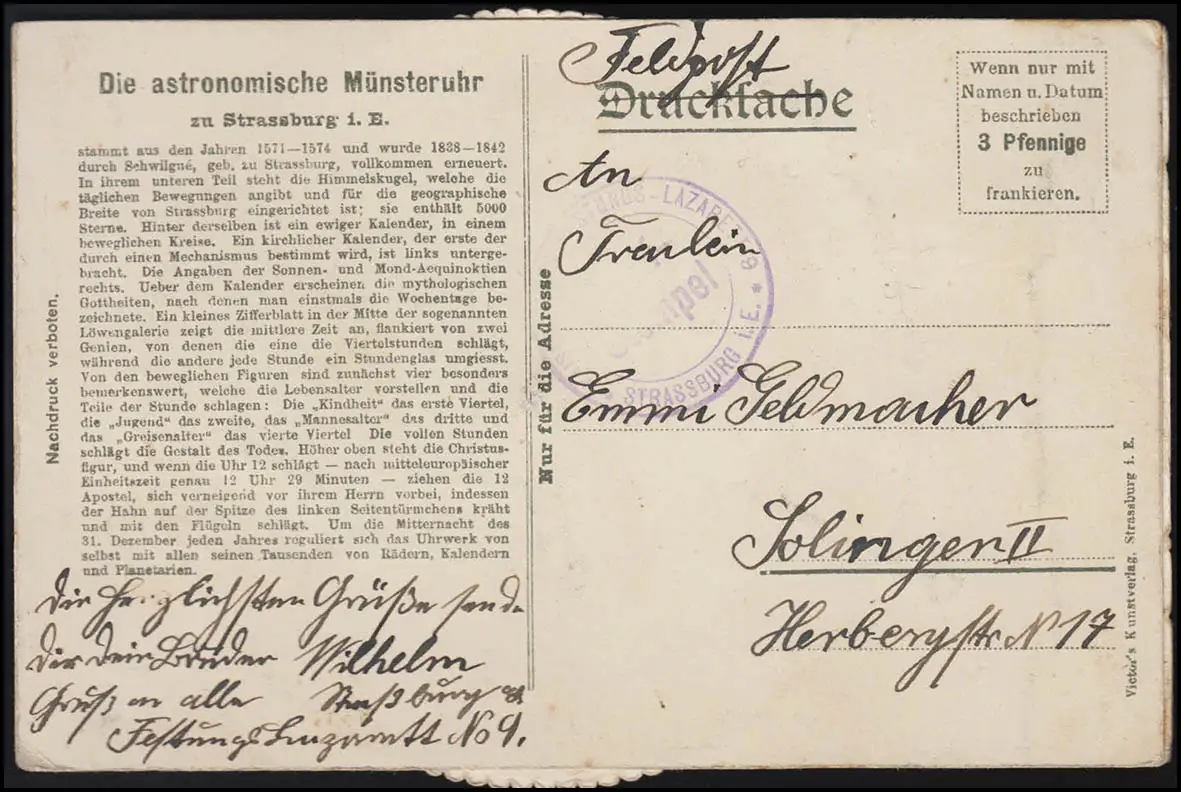 Die astronomische Münsteruhr
zu Strassburg i. E.
stammt aus den Jahren 1571—1574 und wurde 1838—1842
durch Schwilgué, geb. zu Strassburg, vollkommen erneuert.
In ihrem unteren Teil steht die Himmelskugel, welche die
täglichen Bewegungen angibt und für die geographische
Breite von Strassburg eingerichtet ist; sie enthält 5000
Sterne. Hinter derselben ist ein ewiger Kalender, in einem
beweglichen Kreise. Ein kirchlicher Kalender, der erste der
durch einen Mechanismus bestimmt wird, ist links unterge-
bracht. Die Angaben der Sonnen- und Mond-Aequinoktien
rechts. Ueber dem Kalender erscheinen die mythologischen
Gottheiten, nach denen man einstmals die Wochentage be-
zeichnete. Ein kleines Zifferblatt in der Mitte der sogenannten
Löwengalerie zeigt die mittlere Zeit an, flankiert von zwei
Genien, von denen die eine die Viertelstunden schlägt,
während die andere jede Stunde ein Stundenglas umgiesst.
Von den beweglichen Figuren sind zunächst vier besonders
bemerkenswert, welche die Lebensalter vorstellen und die
Teile der Stunde schlagen: Die „Kindheit" das erste Viertel,
die „Jugend" das zweite, das „Mannesalter" das dritte und
das „Greisenalter" das vierte Viertel Die vollen Stunden
schlägt die Gestalt des Todes. Höher oben steht die Christus-
figur, und wenn die Uhr 12 schlägt — nach mitteleuropäischer
Einheitszeit genau 12 Uhr 29 Minuten — ziehen die 12
Apostel, sich verneigend vor ihrem Herrn vorbei, indessen
der Hahn auf der Spitze des linken Seitentürmchens kräht
und mit den Flügeln schlägt. Um die Mitternacht des
31. Dezember jeden Jahres reguliert sich das Uhrwerk von
selbst mit allen seinen Tausenden von Rädern, Kalendern
und Planetarien.
Nachdruck verboten.
Die herzlichsten Grüße sende
Dir Dein Bruder Wilhelm
Gruß an alle Straßburg
Festungs No 9.
Nur für die Adresse
Feldpost
Drucksache
Wenn nur mit
Namen u. Datum
beschrieben
3 Pfennige
zu
frankieren.
An
Freulein
Emmi Geldmacher
Solingen II
Herbergstr No 17
LAZARETT 9 * STRASSBURG i. E.
Stempel
Victor's Kunstverlag, Strassburg i. E.